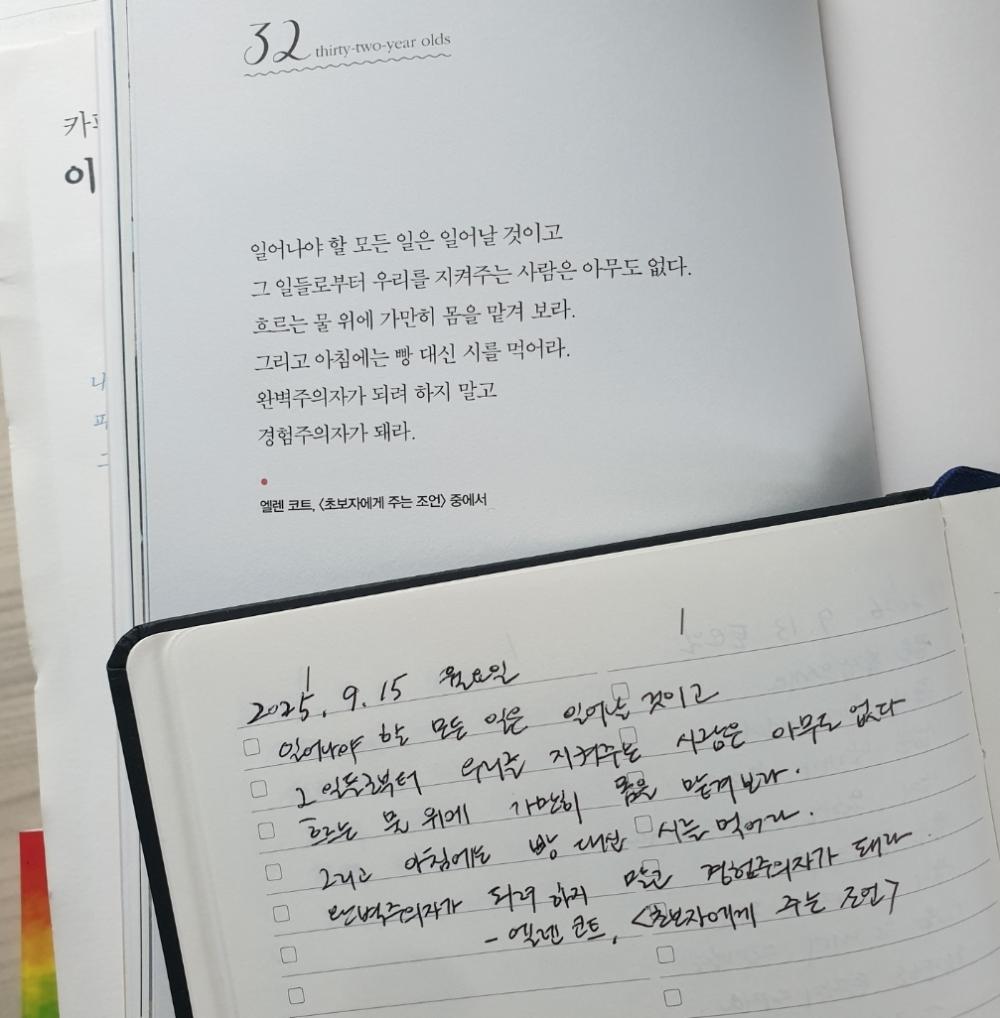 32 thirty-two-year olds
카
이
일어나야 할 모든 일은 일어날 것이고
그 일들로부터 우리를 지켜주는 사람은 아무도 없다.
흐르는 물 위에 가만히 몸을 맡겨 보라.
그리고 아침에는 빵 대신 시를 먹어라.
완벽주의자가 되려 하지 말고
경험주의자가 돼라.
엘렌 코트, 〈초보자에게 주는 조언〉 중에서
나
그
2025. 9. 15 월요일
일어나야 할 모든 일은 일어날 것이고
그 일들로부터 우리를 지켜주는 사람은 아무도 없다
흐르는 물 위에 가만히 몸을 맡겨보라.
그리고 아침에는 빵 대신 시를 먹어라.
완벽주의자가 되려 하지 말고 경험주의자가 돼라.
- 엘렌 코트, <초보자에게 주는 조언>